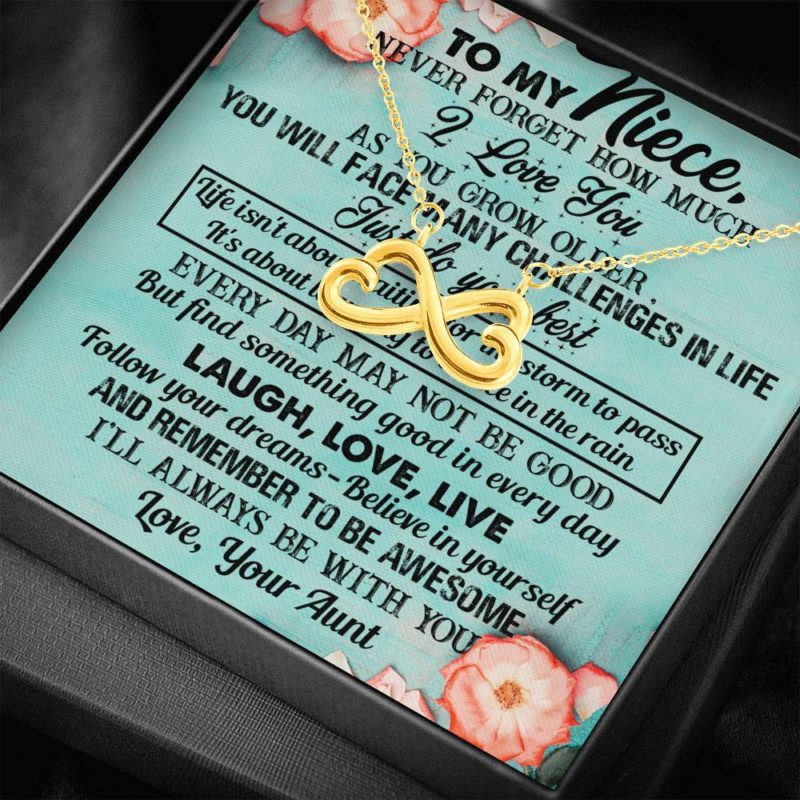 TO MY Niece,
NEVER FORGET HOW MUCH
I Love You
AS YOU GROW OLDER,
YOU WILL FACE MANY CHALLENGES IN LIFE
Just do your best
Life isn't about waiting for the storm to pass
It's about to in the rain
EVERY DAY MAY NOT BE GOOD
But find something good in every day
LAUGH, LOVE, LIVE
Follow your dreams - Believe in yourself
AND REMEMBER TO BE AWESOME
I'LL ALWAYS BE WITH YOU
Love, Your Aunt